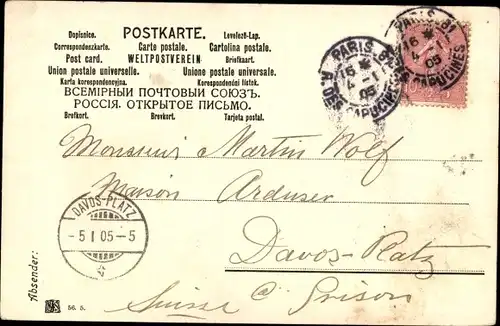 POSTKARTE.
Dopisnice. Levelező-Lap.
Correspondenzkarte. Carte postale. Cartolina postale.
Post card. WELTPOSTVEREIN Briefkaart.
Union postale universelle. Unione postale universale.
Karta korespondencyjna. Korespondenční lístek.
ВСЕМІРНЫЙ ПОЧТОВЫЙ СОЮЗЪ.
РОССІЯ. ОТКРЫТОЕ ПИСЬМО.
Brefkort. Brevkort. Tarjeta postal.
PARIS
16
4 -1
05
R. DES CAPUCINES
PARIS
16
4 -1
05
CAPUCINES
Monsieur Martin Wolf
Maison Arduser
DAVOS-PLATZ
- 5 I 05 - 5
Davos-Platz
Suisse C. Grison
Absender:
56. 5.